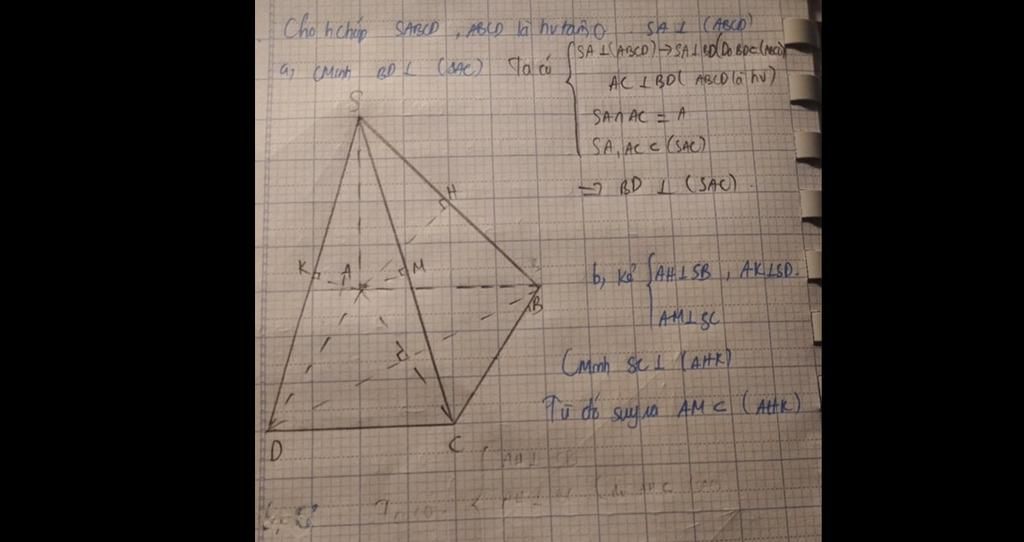 Cho hchóp SABCD, ABCD là hv tâm O. SA ⊥ (ABCD)
a, CMinh BD ⊥ (SAC) Ta có
SA ⊥ (ABCD) → SA ⊥ BD (Do BD ⊂ (ABCD)
AC ⊥ BD ( ABCD là hv)
SA ∩ AC = A
SA, AC ⊂ (SAC)
=> BD ⊥ (SAC).
S
H
K A M
B
D C
b, Kẻ AH ⊥ SB, AK ⊥ SD.
AM ⊥ SC
CMinh SC ⊥ (AHK)
Từ đó suy ra AM ⊂ (AHK)